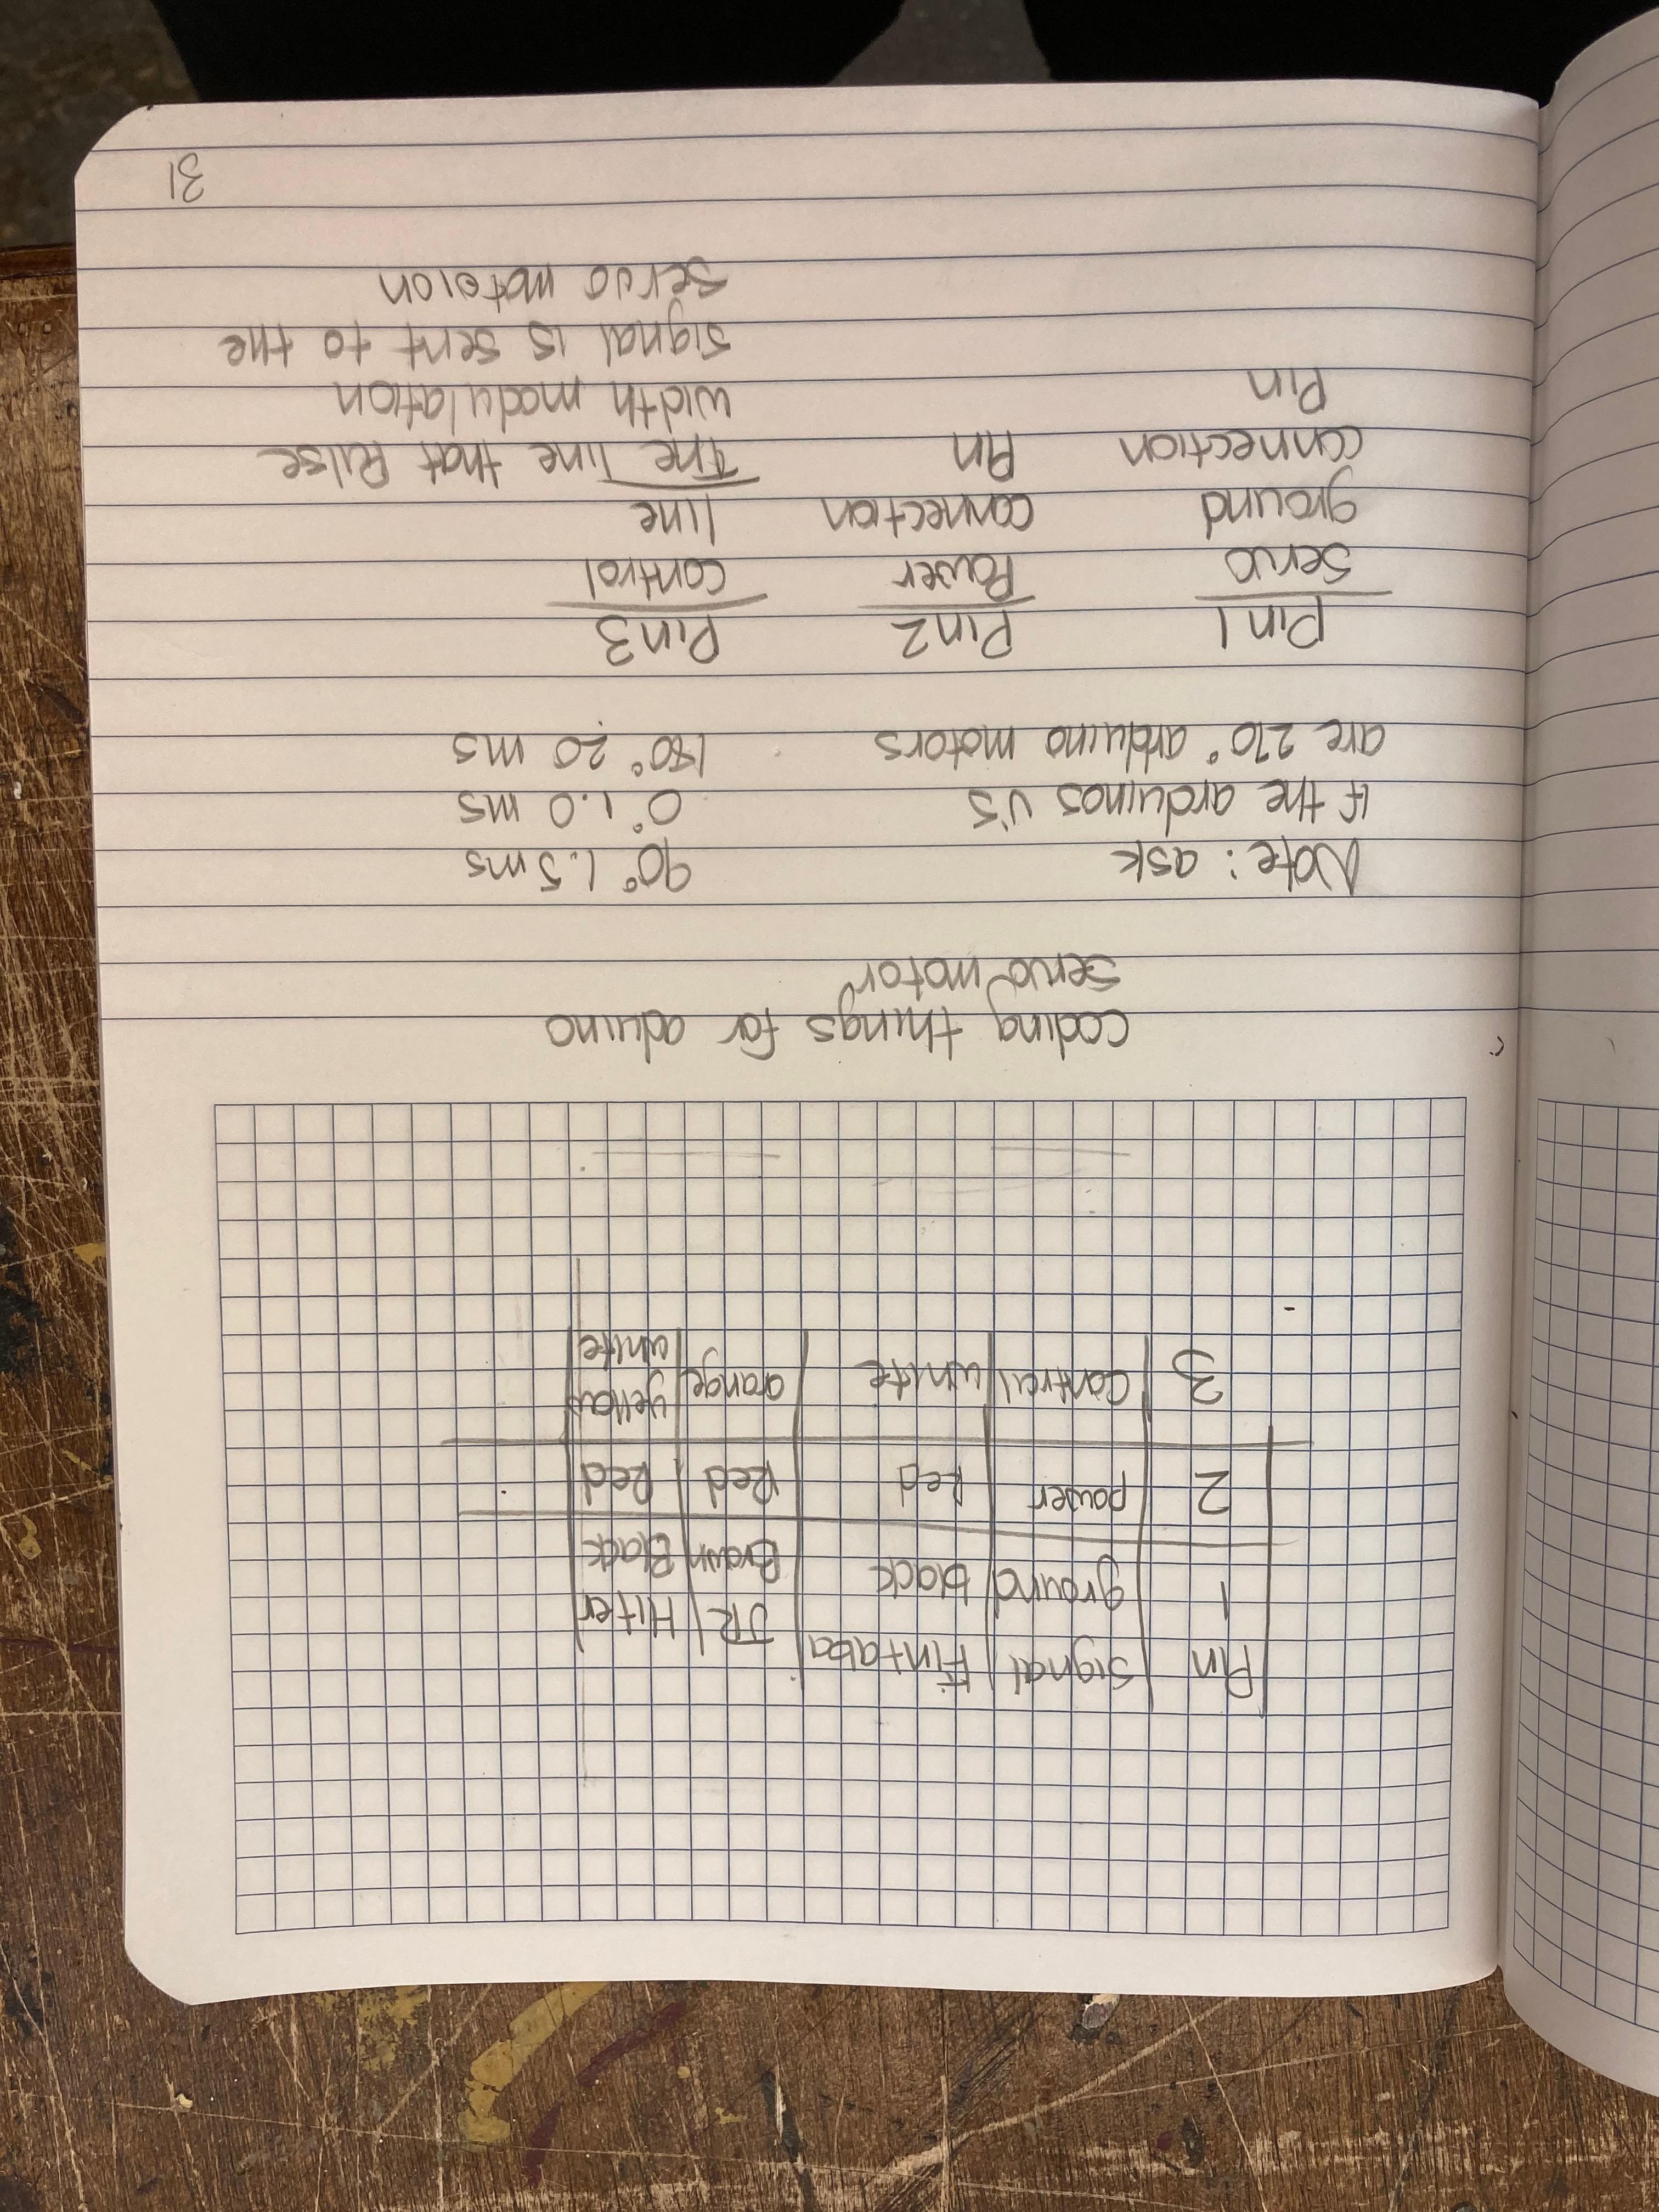 Pin | Signal | Fintaba | JR | Hiter
1 | ground | black | Brown | Black
2 | power | Red | Red | Red
3 | Control | white | orange | yellow white
coding things for aduino
servo motor
Note: ask 90° 1.5 ms
if the arduinos v's 0° 1.0 ms
are 270° arduino motors 180° 2.0 ms
Pin 1 Pin 2 Pin 3
Servo Power control
ground connection line
connection Pin The line that Pulse
Pin width modulation
signal is sent to the
servo motoion
31